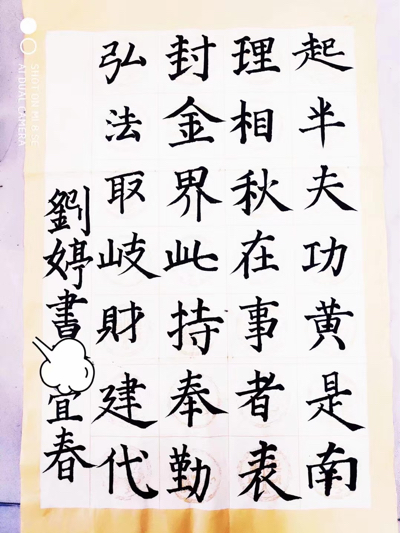 起半夫功黄是南
理相秋在事者表
封金界此持奉勤
弘法取岐財建代
劉婷書宜春
SHOT ON MI PLAY
AI DUAL CAMERA